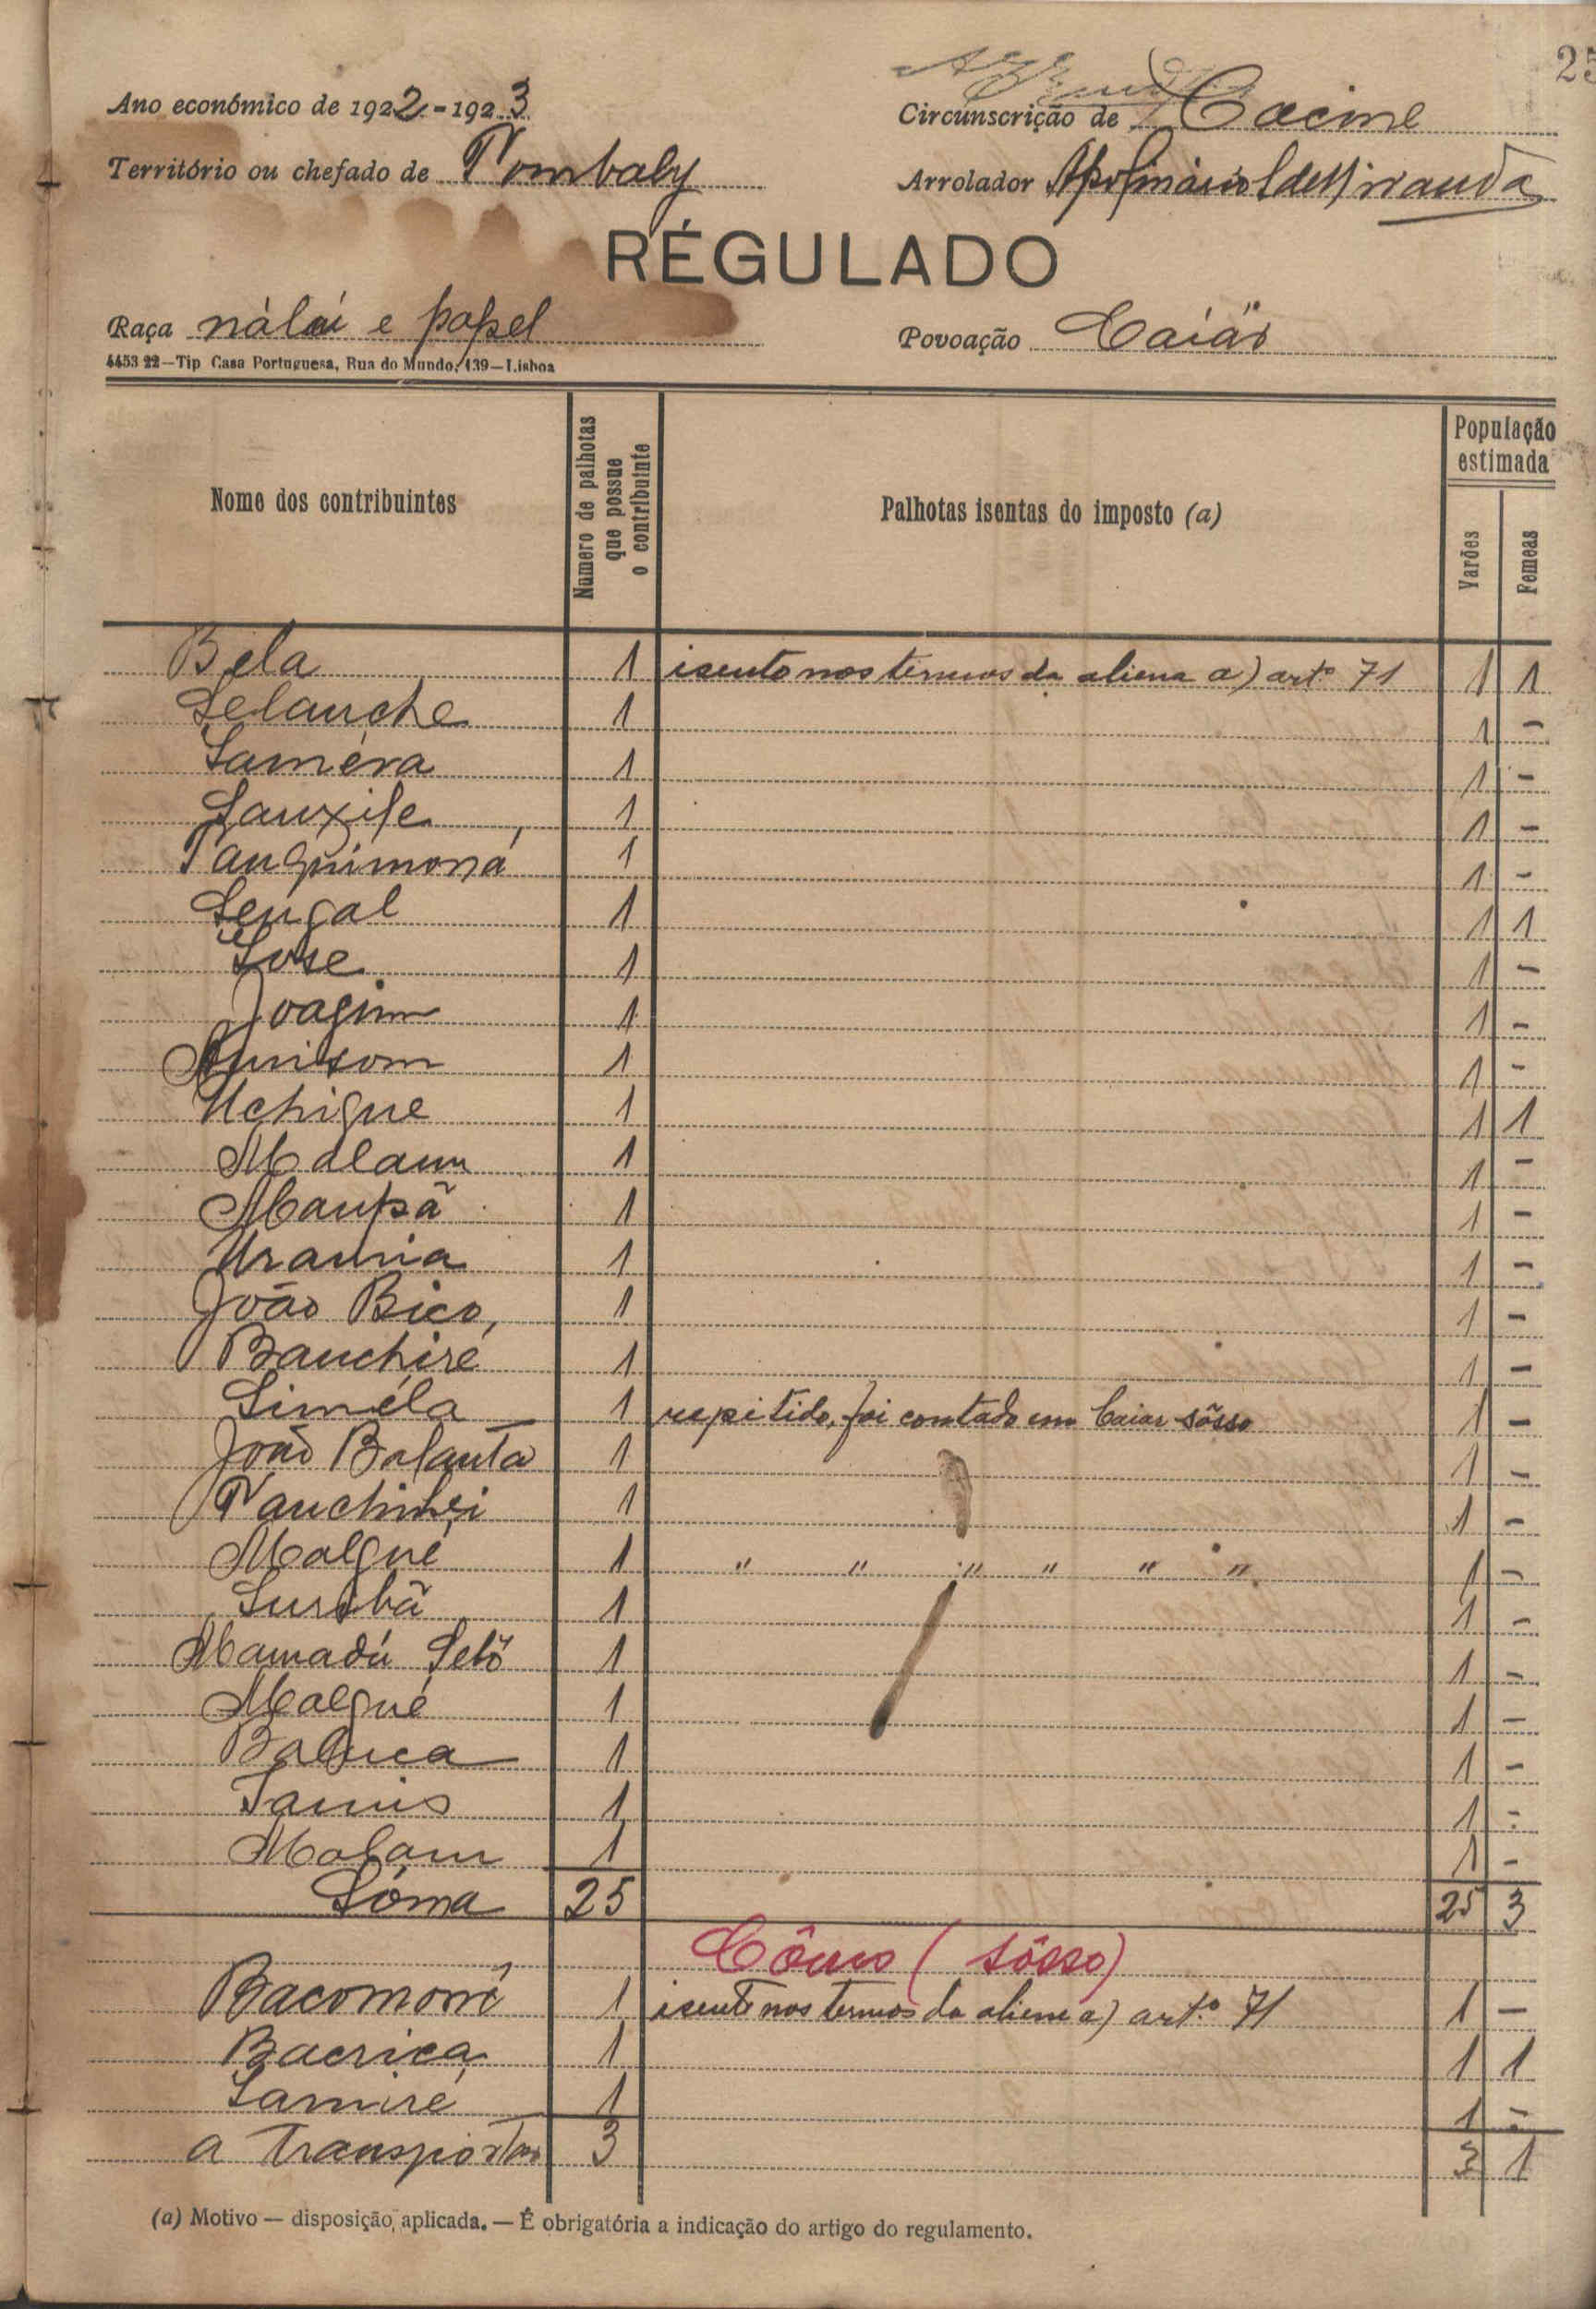 25
Ano económico de 1922-1923
Circunscrição de Cacine
Território ou chefado de Tombaly
Arrolador Apolinário C de Miranda
RÉGULADO
Raça nalú e papel
Povoação Caiár
4453 22—Tip Casa Portuguesa, Rua do Mundo, 139—Lisboa
Nome dos contribuintes
Numero de palhotas que possue o contribuinte
Palhotas isentas do imposto (a)
População estimada
Varões
Femeas
Bela 1 isento nos termos da aliena a) artº 71 1 1
Selanche 1 1 -
Saméra 1 1 -
Sanxife 1 1 -
Tanquimoná 1 1 -
Sengal 1 1 1
José 1 1 -
Joaqim 1 1 -
1 1 -
Uchigue 1 1 1
Malam 1 1 -
Manpã 1 1 -
Urania 1 1 -
João Bico, 1 1 -
Banchiré 1 1 -
Siméla 1 repitido, foi contado em Caiar sôsso 1 -
João Balanta 1 1 -
1 1 -
Malgué 1 " " " " " " 1 -
1 1 -
Mamadú 1 1 -
Malgué 1 1 -
1 1 -
1 1 -
Malam 1 1 -
Sóma 25 25 3
Cômo (sôsso)
Bacomoné 1 isento nos termos da aliene a) art.º 71 1 -
Bacrica 1 1 1
Samiré 1 1 -
a transportar 3 3 1
(a) Motivo — disposição, aplicada. — É obrigatória a indicação do artigo do regulamento.